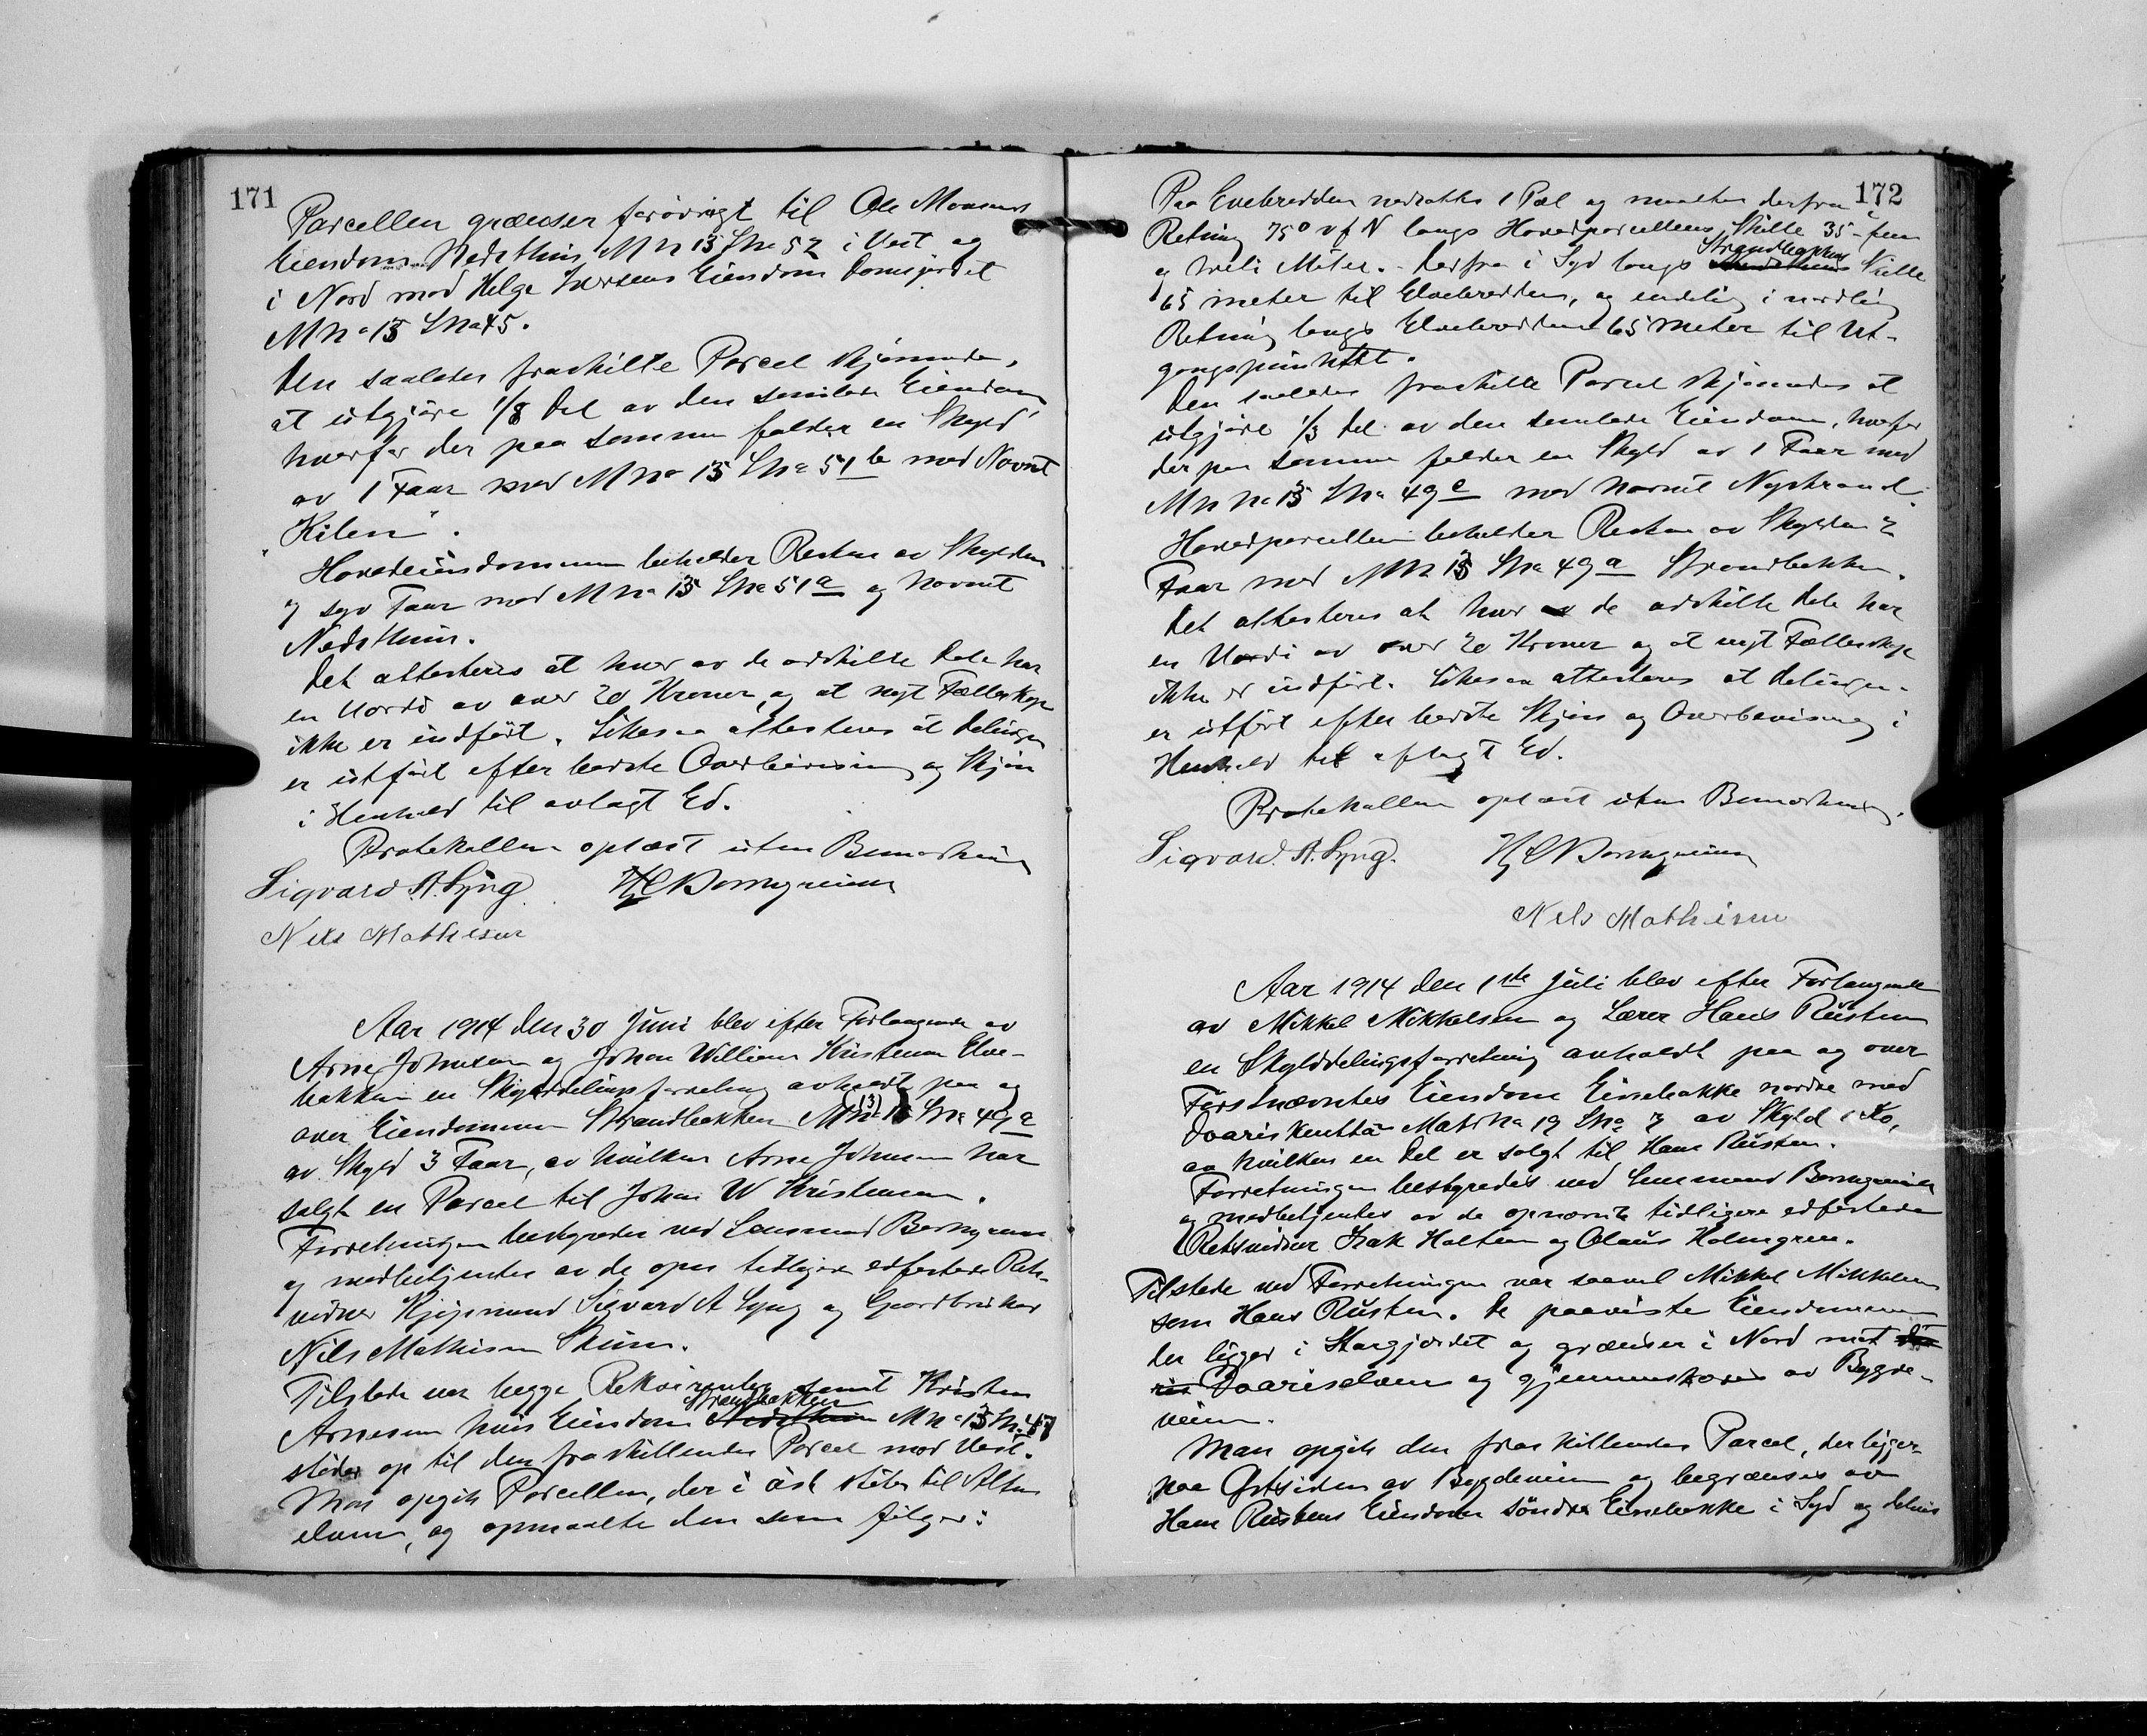 171
Parcellen grænser forövrigt til Ole Monsens
Eiendom Nedsthuis, M No 13 LNo 52 i Vest og
i Nord mod Helge Iversens Eiendom Domsjordet
M No 13 LNo 45.
Den saaledes fraskilte Parcel skjönnedes,
at utgjöre 1/8 Del av den samlede Eiendom
hvorfor der paa samme falder en Skyld
av 1 Faar med M No 13 LNo 51 b med Navnet
"Kilen".
Hovedeiendommen beholder Resten av Skylden
7 syv Faar med M No 13 LNo 51 a og Navnet
Nedsthuis.
Det attesteres at hver av de adskilte Dele har
en Værdi av over 20 Kroner, og at nyt Fællesskap
ikke er indfört. Likesaa attesteres at Delingen
er utfört efter bedste Overbevisning og Skjön
i Henhold til avlagt Ed.
Protokollen oplæst uten Bemerkning
Sigvard A. Lyng.
Nils Mathisen
Aar 1914 den 30 Juni blev efter Forlangende av
Arne Johnsen og Johan William Kristensen Elve-
bakken en Skylddelingsforretning avholdt paa og
over Eiendommen Strandbakken M No 13 (13) LNo 49 a
av Skyld 3 Faar, av hvilken Arne Johnsen har
solgt en Parcel til Johan W Kristensen.
Forretningen bestyredes ved Lensmand
og medbetjentes av de opn tidligere edfæstede Rets-
vidner Kjöpmand Sigvard A Lyng og Gaardbruker
Nils Mathisen Skum.
Tilstede var begge Rekvirenter samt Kristen
Arnesen hvis Eiendom Strandbakken M No 13 LNo 47
stöder op til den fraskillendes Parcel mod Vest.
Man opgik Parcellen, der i öst stöter til Alten
elven, og opmaalte den som fölger:
172
Paa Elvebredden nedsattes 1 Pæl og maaltes derfra i
Retning 75° v f N langs Hovedparcellens Skille 35 - fem
og treti Meter. - Derfra i Syd langs Strandbakkens Skille
65 meter til Elvebredden, og endelig i nordlig
Retning langs Elvebredden 65 meter til Ut-
gangspunktet.
Den saaledes fraskilte Parcel skjönnedes at
utgjöre 1/3 Del av den samlede Eiendom, hvorfor
der paa samme falder en Skyld av 1 Faar med
M N No 13 LNo 49 c med Navnet Nystrand.
Hovedparcellen beholder Resten av Skylden 2
Faar med M No 13 LNo 49 a Strandbakken.
Det attesteres at hver av de adskilte Dele har
en Værdi av over 20 Kroner og at nyt Fællesskap
ikke er indfört. Likesaa attesteres at Delingen
er utfört efter bedste Skjön og Overbevisning i
Henhold til aflagt Ed.
Protokollen oplæst uten Bemerkning.
Sigvard. A. Lyng.
Nils Mathisen
Aar 1914 den 1ste Juli blev efter Forlangende
av Mikkel Mikkelsen og Lærer Hans Rüsten
en Skylddelingsforretning avholdt paa og over
Förstnævntes Eiendom Einebakke nordre med
Doariskenttä Matr No 19 LNo 7 av Skyld 1 Ko,
av hvilken en Del er solgt til Hans Rüsten.
Forretningen bestyredes ved Lensmand
og medbetjentes av de opnævnte tidligere edfæstede
Retsvidner Isak Halten og Olaus Holmgren.
Tilstede ved Forretningen var saavel Mikkel Mikkelsen
som Hans Rüsten. De paaviste Eiendommen
der ligger i Storgjordet og grænser i Nord mot
Doariselven og gjennemskjæres av Bygde-
veien.
Man opgik den fraskillendes Parcel, der ligger
paa Östsiden av Bygdeveien og begrænses av
Hans Rüstens Eiendom söndre Einebakke i Syd og delvis